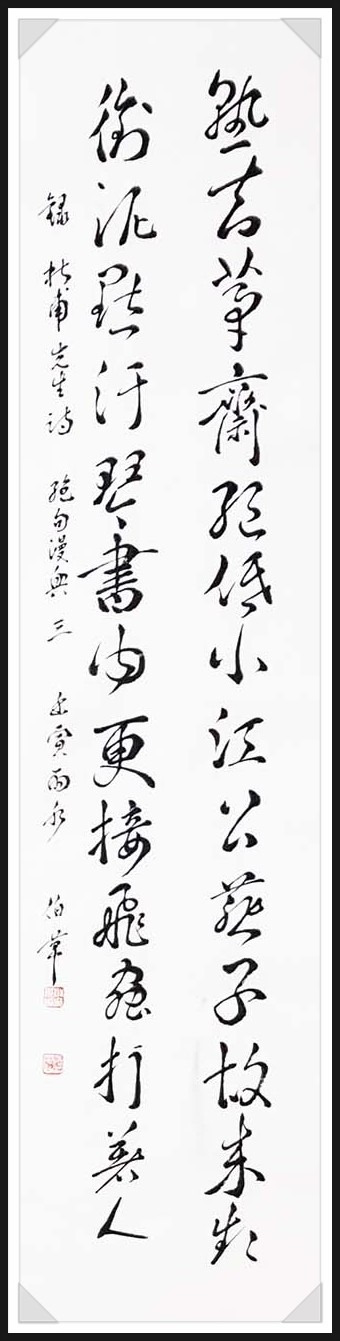 熟知茅齋絕低小江上燕子故來頻
銜泥點汙琴書內更接飛蟲打著人
錄 杜甫先生詩 絕句漫興 三 壬寅雨水 伯